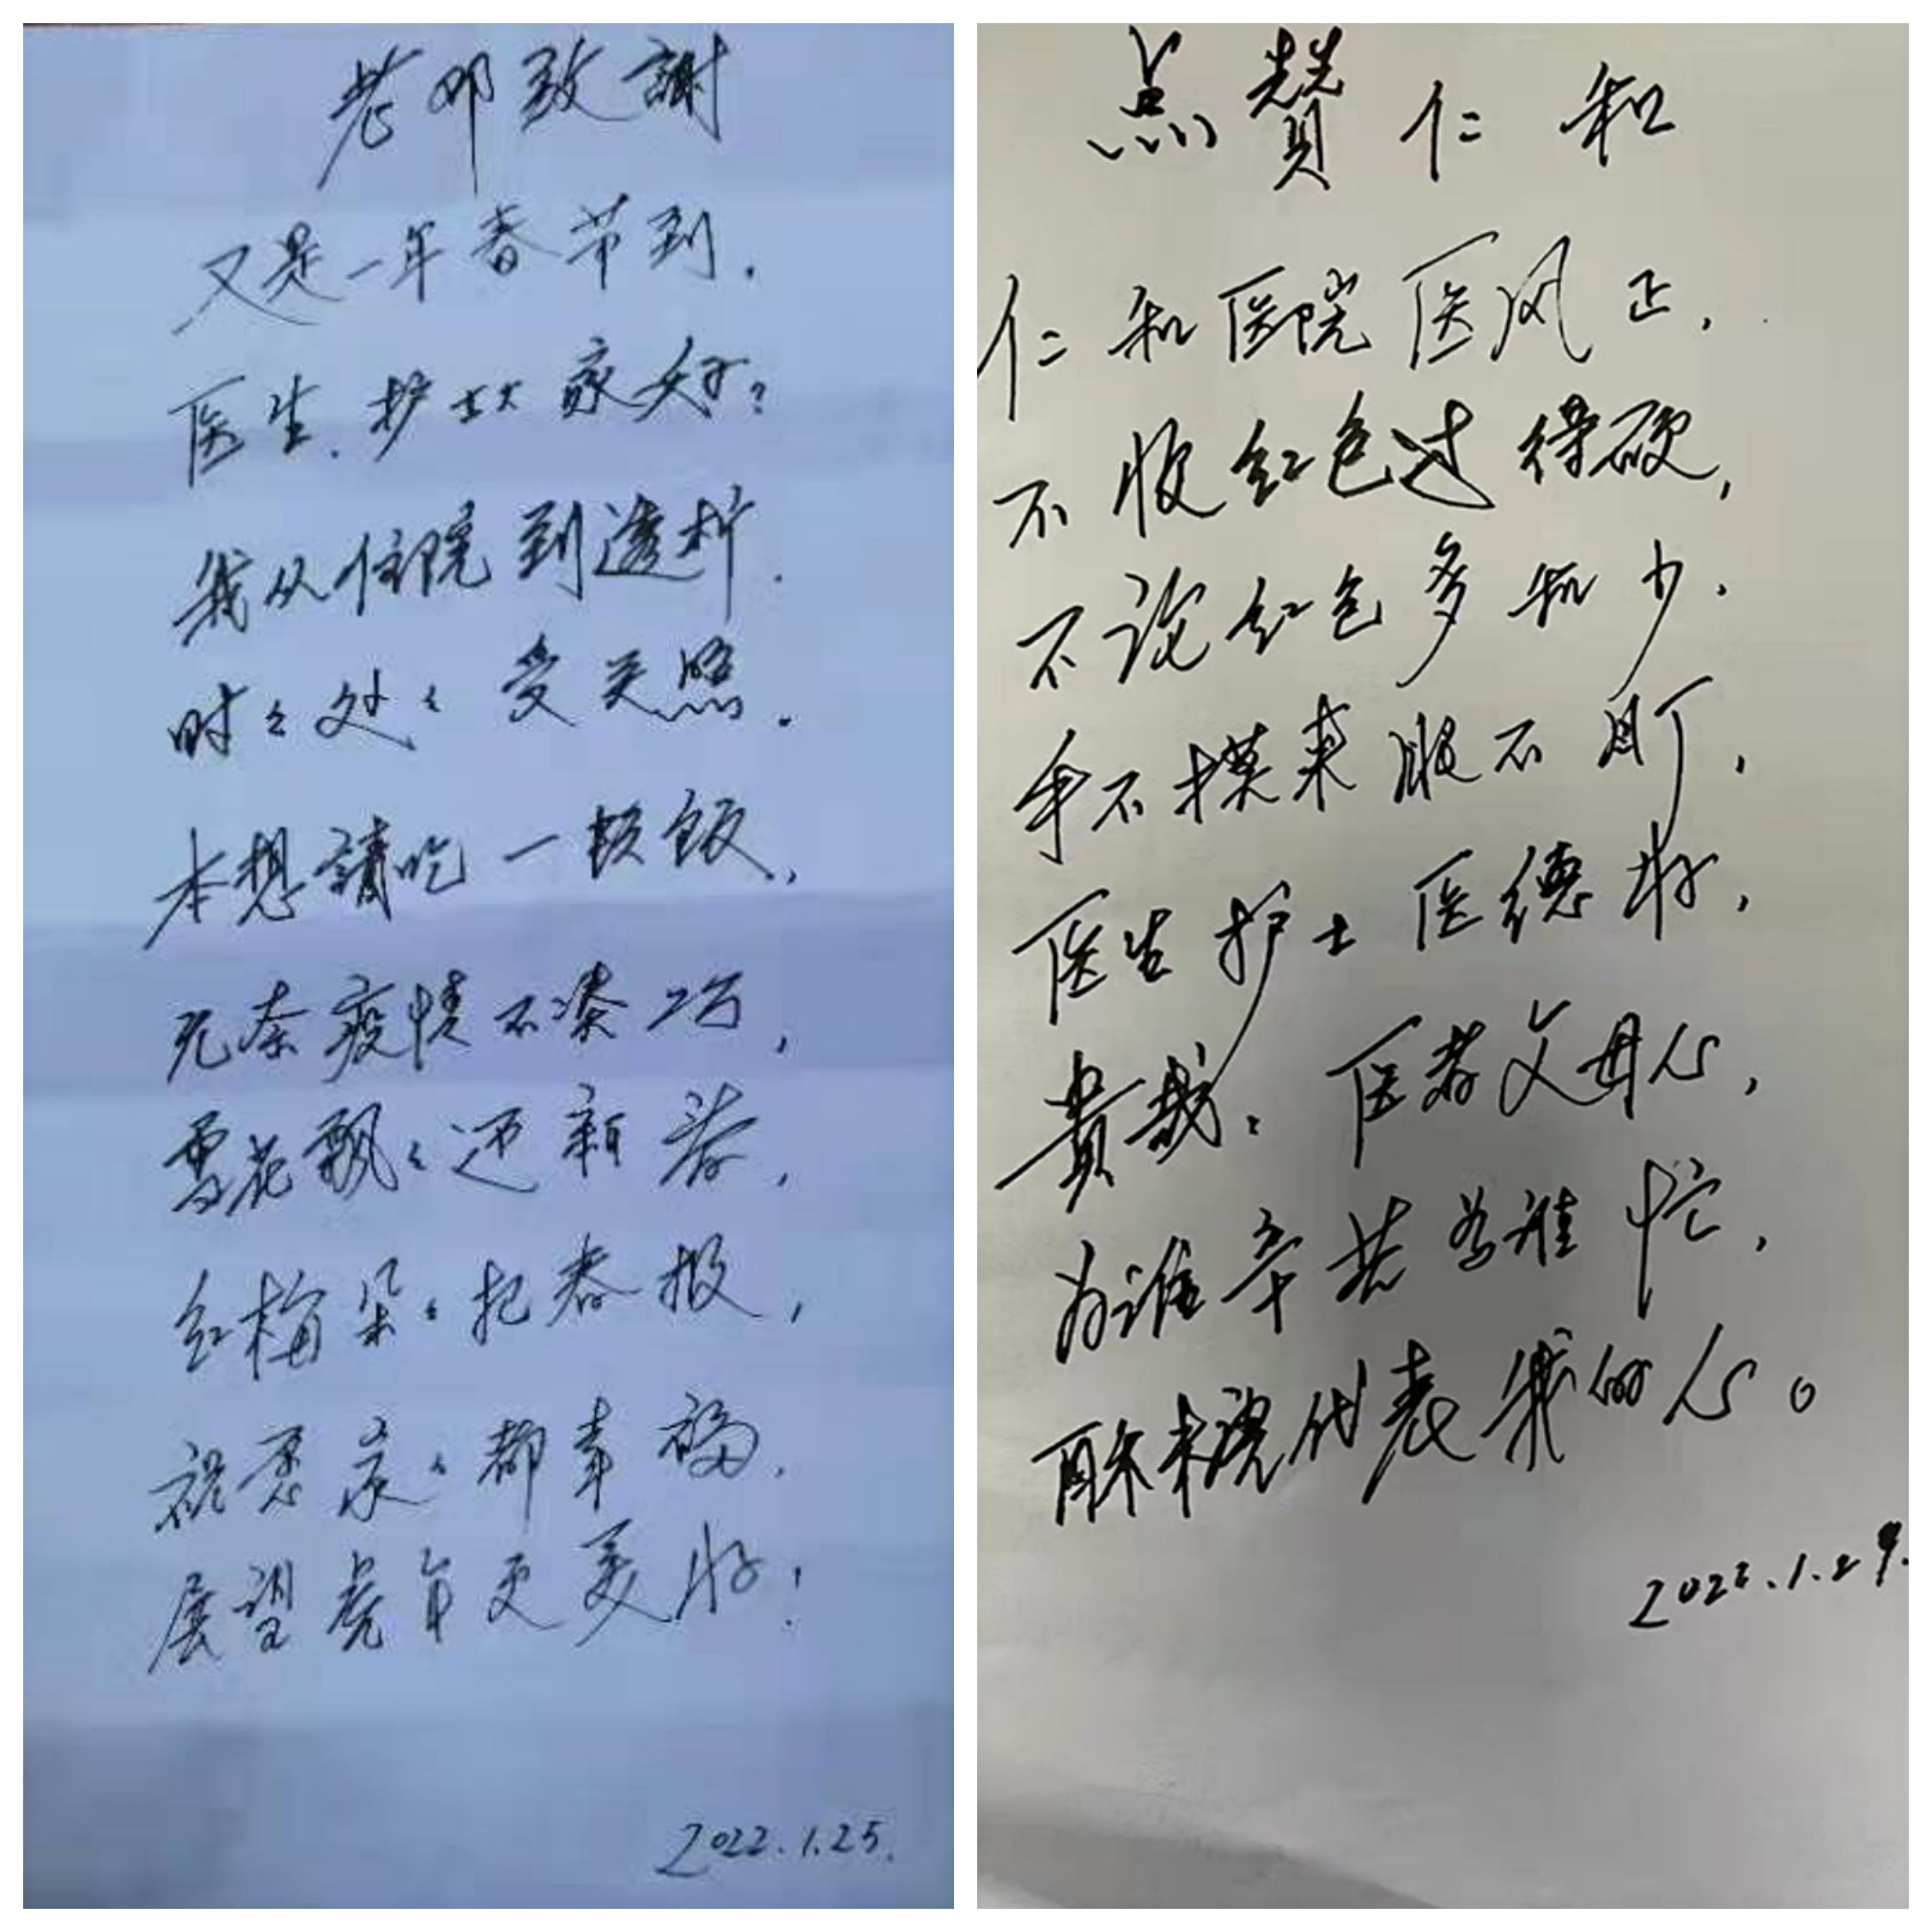 老邓致謝
又是一年春节到.
医生.护士大家好?
我从住院到透析.
时々处々受关照.
本想請吃一顿饭,
无奈疫情不凑巧,
雪花飘々迎新春,
红梅朵々把春报,
祝愿家々都幸福.
展望虎年更美好!
2022.1.25.
点贊仁和
仁和医院医风正,
不收红包过得硬,
不论红包多和少.
手不摸来眼不盯,
医生护士医德好,
贵哉:医者父母心,
为谁辛苦为谁忙,
代表我的心。
2022.1.29.